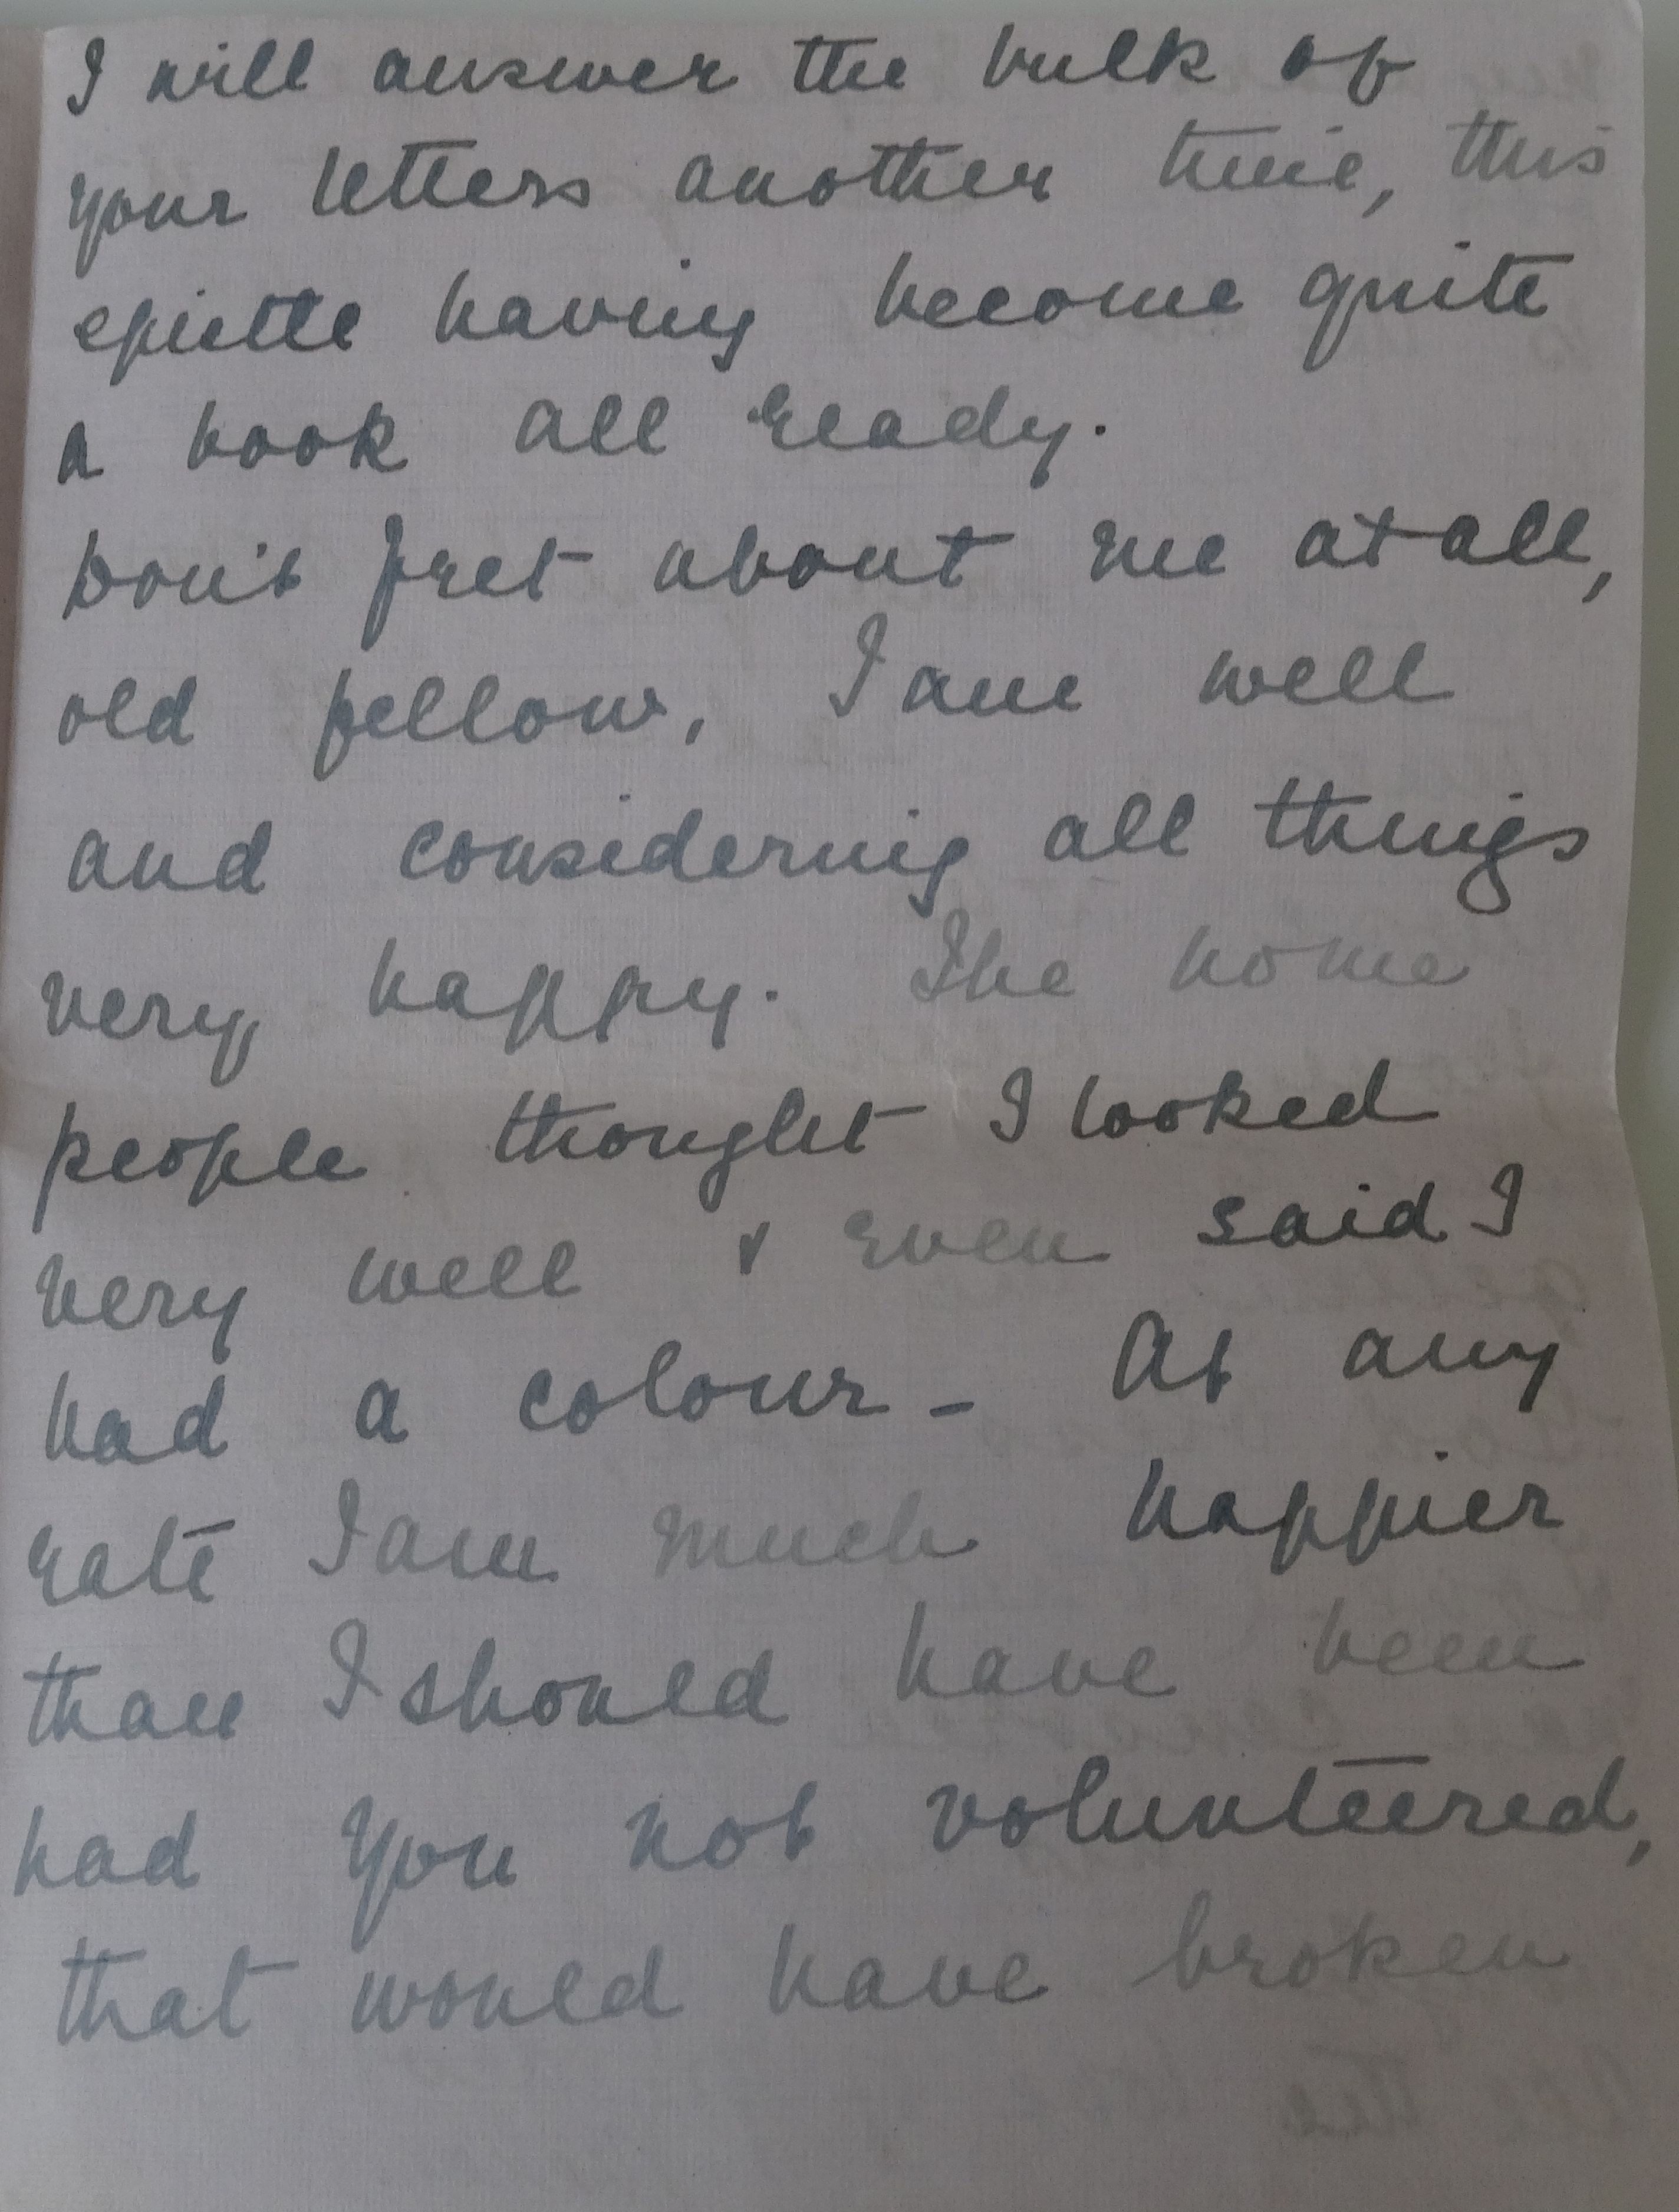 I will answer the bulk of
your letters another time, this
epistle having become quite
a book all ready.
Don't fret about me at all,
old fellow, I am well
and considering all things
very happy. The home
people thought I looked
very well & even said I
had a colour - At any
rate I am much happier
than I should have been
had you not volunteered,
that would have broken